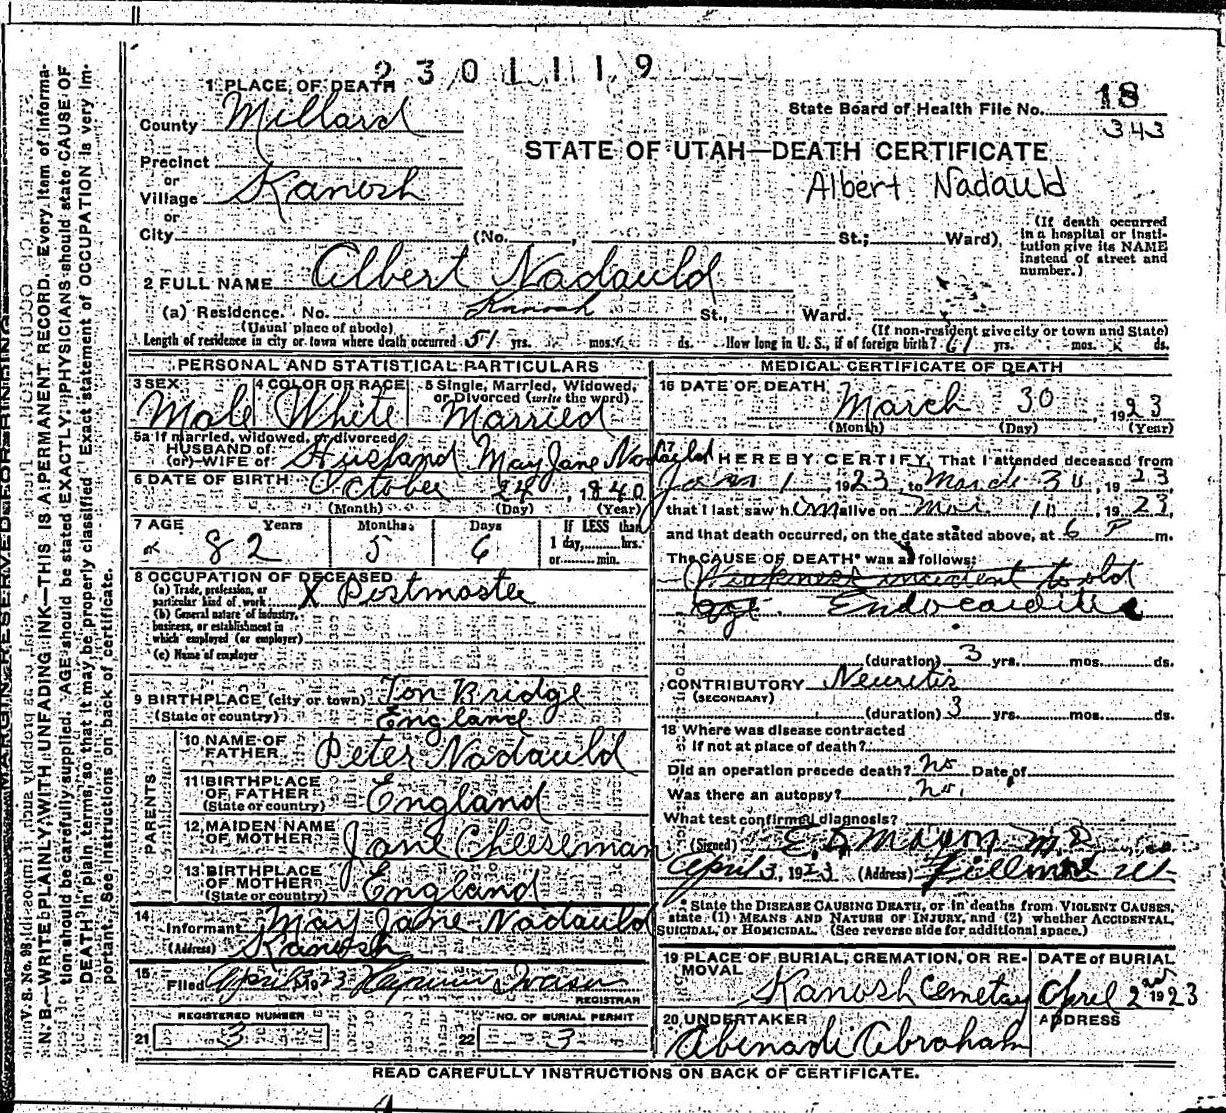 2301119
1 PLACE OF DEATH
County Millard
State Board of Health File No. 18
343
STATE OF UTAH—DEATH CERTIFICATE
Albert Nadauld
Precinct
or
Village Kanosh
or
City (No. , St.; Ward)
(If death occurred in a hospital or institution give its NAME instead of street and number.)
2 FULL NAME Albert Nadauld
(a) Residence. No. Kanosh St., Ward.
(Usual place of abode) (If non-resident give city or town and State)
Length of residence in city or town where death occurred 51 yrs. mos. ds. How long in U. S., if of foreign birth? 61 yrs. mos. ds.
PERSONAL AND STATISTICAL PARTICULARS
3 SEX 4 COLOR OR RACE 5 Single, Married, Widowed, or Divorced (write the word)
Male White Married
5a If married, widowed, or divorced
HUSBAND of
(or) WIFE of Husband May Jane Nadauld
6 DATE OF BIRTH October 24, 1840
(Month) (Day) (Year)
7 AGE Years Months Days If LESS than
82 5 6 1 day, hrs.
or min.
8 OCCUPATION OF DECEASED
(a) Trade, profession, or
particular kind of work X Postmaster
(b) General nature of industry,
business, or establishment in
which employed (or employer)
(c) Name of employer
9 BIRTHPLACE (city or town) Ton Bridge
(State or country) England
PARENTS
10 NAME OF
FATHER Peter Nadauld
11 BIRTHPLACE
OF FATHER England
(State or country)
12 MAIDEN NAME
OF MOTHER Jane Cheeseman
13 BIRTHPLACE
OF MOTHER England
(State or country)
14
Informant Mary Jane Nadauld
(Address) Kanosh
15
Filed April 3 1923
REGISTRAR
REGISTERED NUMBER NO. OF BURIAL PERMIT
21 3 22 3
MEDICAL CERTIFICATE OF DEATH
16 DATE OF DEATH
March 30, 1923
(Month) (Day) (Year)
17 I HEREBY CERTIFY, That I attended deceased from
Jan 1, 1923, to March 30, 1923
that I last saw him alive on Mar. 10, 1923,
and that death occurred, on the date stated above, at 6 P m.
The CAUSE OF DEATH* was as follows:
Weakness incident to old
age. Endocarditis
(duration) 3 yrs. mos. ds.
CONTRIBUTORY Neuritis
(SECONDARY)
(duration) 3 yrs. mos. ds.
18 Where was disease contracted
if not at place of death?
Did an operation precede death? no Date of
Was there an autopsy? no.
What test confirmed diagnosis?
(Signed) M. D.
April 3, 1923 (Address) Fillmore Ut
* State the DISEASE CAUSING DEATH, or in deaths from VIOLENT CAUSES,
state (1) MEANS AND NATURE OF INJURY, and (2) whether ACCIDENTAL,
SUICIDAL, or HOMICIDAL. (See reverse side for additional space.)
19 PLACE OF BURIAL, CREMATION, OR REMOVAL DATE of BURIAL
Kanosh Cemetay April 2nd 1923
20 UNDERTAKER ADDRESS
Abinadi Abraham
READ CAREFULLY INSTRUCTIONS ON BACK OF CERTIFICATE.
MARGIN RESERVED FOR BINDING
N. B.—WRITE PLAINLY, WITH UNFADING INK—THIS IS A PERMANENT RECORD. Every item of information
should be carefully supplied. AGE should be stated EXACTLY. PHYSICIANS should state CAUSE OF
DEATH in plain terms, so that it may be properly classified. Exact statement of OCCUPATION is very important.
See instructions on back of certificate.